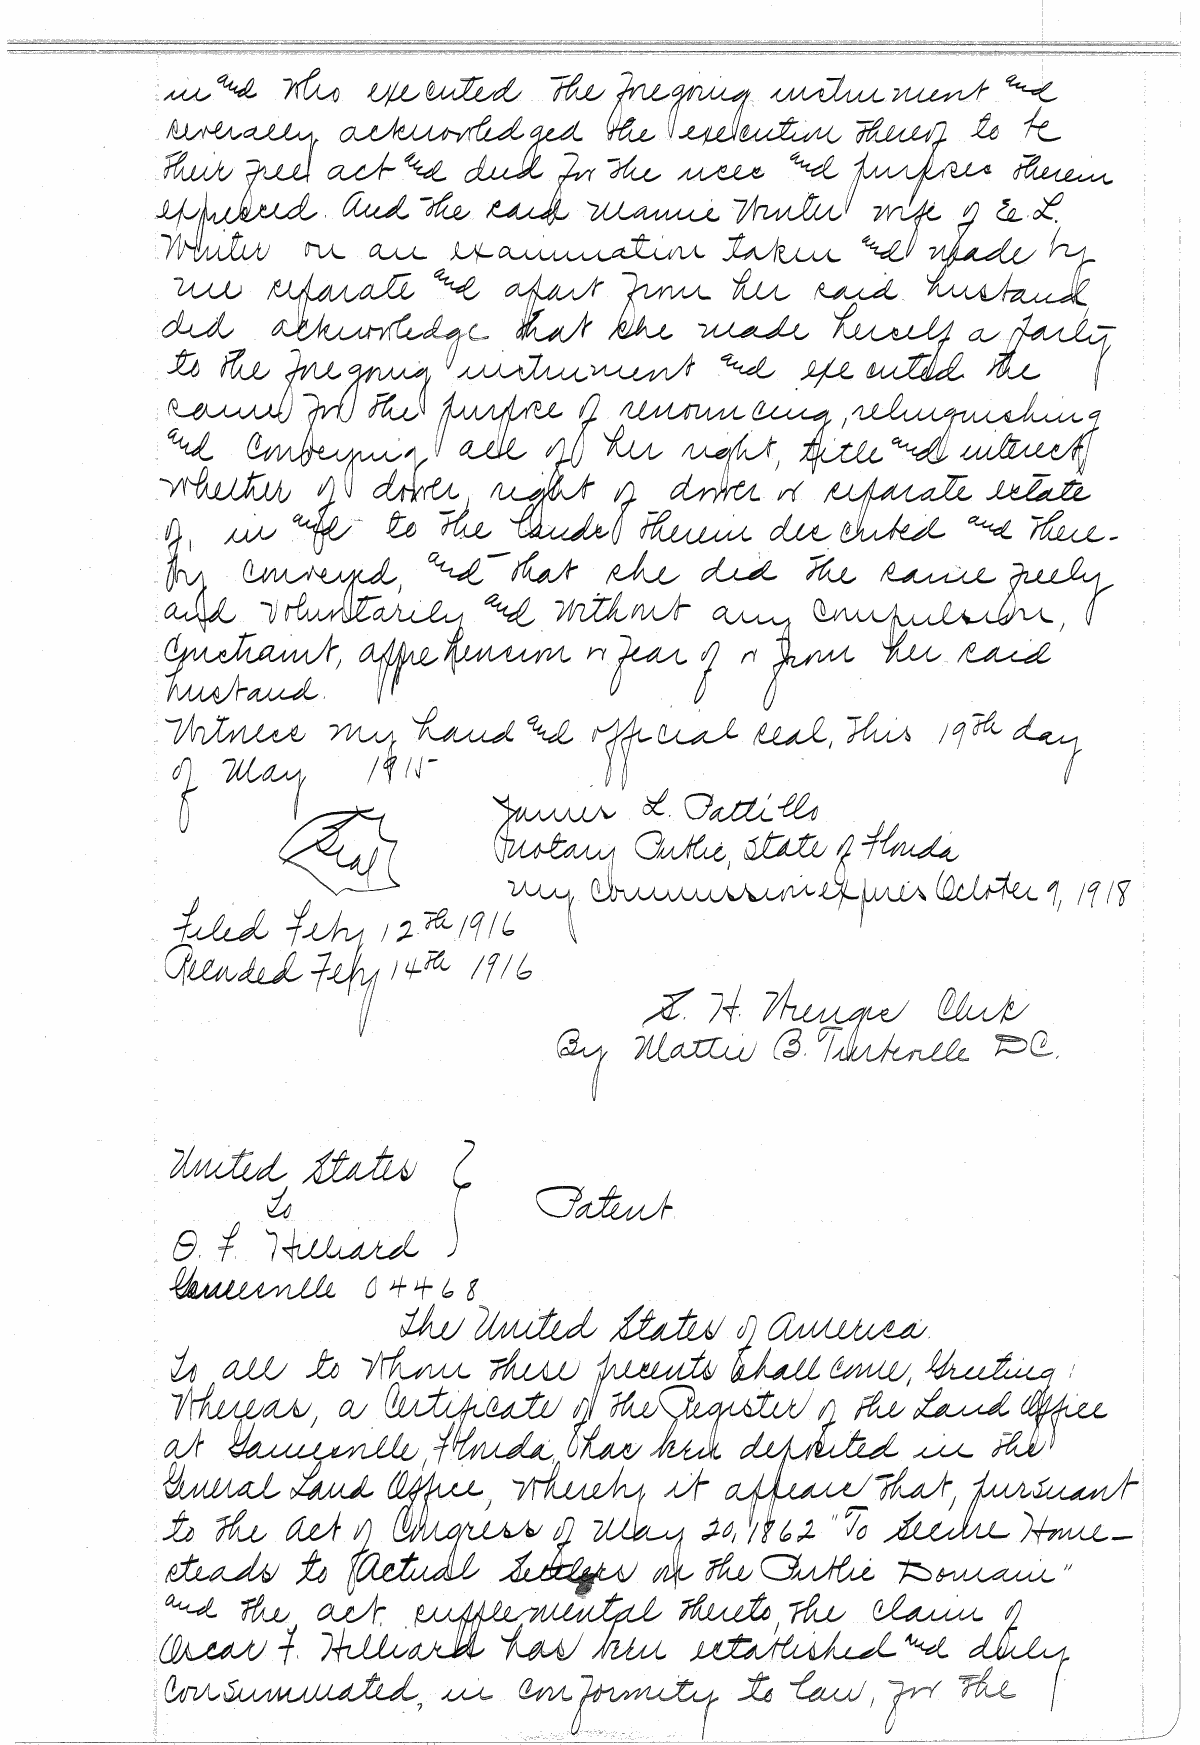 in and who executed the foregoing instrument and
severally acknowledged the execution thereof to be
their free act and deed for the uses and purposes therein
expressed. And the said Mamie Winter wife of E. L.
Winter on an examination taken and made by
me separate and apart from her said husband
did acknowledge that she made herself a party
to the foregoing instrument and executed the
same for the purpose of renouncing, relinquishing
and conveying all of her right, title and interest
whether of dower, right of dower or separate estate
of, in and to the lands therein described and there-
by conveyed, and that she did the same freely
and voluntarily and without any compulsion,
constraint, apprehension or fear of or from her said
husband.
Witness my hand and official seal, this 19th day
of May 1915
James L. Pattillo
Seal
Notary Public, State of Florida
My Commission expires October 9, 1918
Filed Feby 12th 1916
Recorded Feby 14th 1916
S. H. Clerk
By Mattie B. DC.
United States
To
Patent
O. F. Hilliard
Gainesville 04468
The United States of America.
To all to whom these presents shall come, Greeting:
Whereas, a Certificate of the Register of the Land Office
at Gainesville, Florida, has been deposited in the
General Land Office, whereby it appears that, pursuant
to the Act of Congress of May 20, 1862 "To Secure Home-
steads to Actual Settlers on the Public Domain"
and the act supplemental thereto, the claim of
Oscar F. Hilliard has been established and duly
consummated, in conformity to law, for the